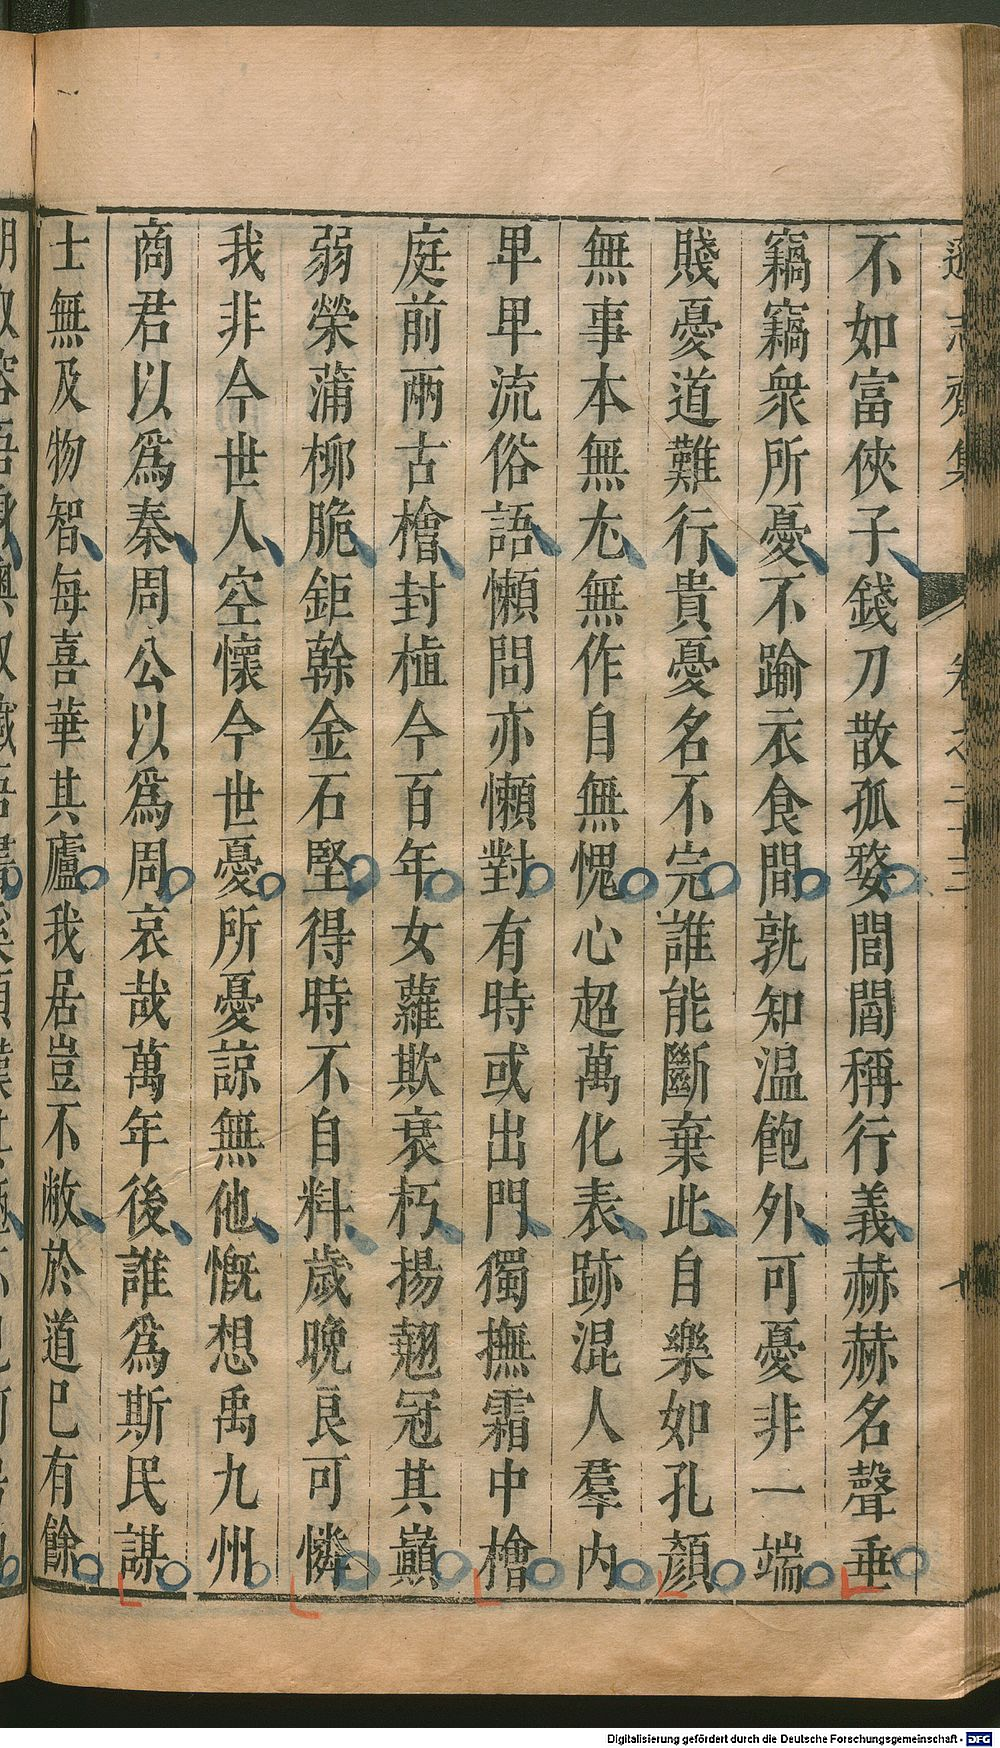 遜志齋集 卷之二十三 十
不如富俠子錢刀散孤婺閭閻稱行義赫赫名聲垂
竊竊衆所憂不踰衣食間孰知温飽外可憂非一端
賤憂道難行貴憂名不完誰能斷棄此自樂如孔顏
無事本無尤無作自無愧心超萬化表跡混人羣内
早早流俗語懶問亦懶對有時或出門獨撫霜中檜
庭前兩古檜封植今百年女蘿欺衰朽揚翹冠其巔
弱榮蒲柳脆鉅幹金石堅得時不自料歲晚良可憐
我非今世人空懷今世憂所憂諒無他慨想禹九州
商君以爲秦周公以爲周哀哉萬年後誰爲斯民謀
士無及物智每喜華其廬我居豈不敝於道已有餘
Digitalisierung gefördert durch die Deutsche Forschungsgemeinschaft - DFG